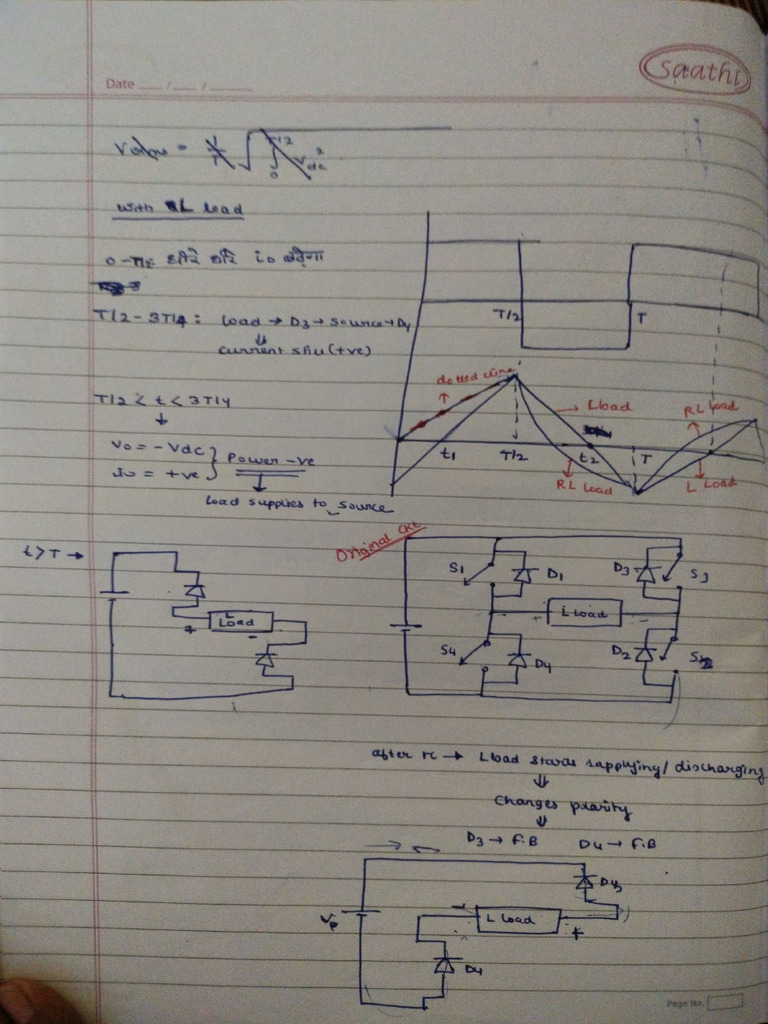 saathi
Date __ / __ / __
with L load
0-T/2: धीरे धीरे io बढ़ेगा
T/2-3T/4: Load → D3 → Source → D4
current still (+ve)
T/2 < t < 3T/4
Vo = -Vdc
Io = +ve
Power -ve
Load supplies to source
T/2
T
dotted line
L load
RL load
t1
T/2
t2
T
RL load
L load
t>T →
L
Load
+
-
Original Ckt
S1
D1
D3
S3
L load
S4
D4
D2
S2
after π → L load starts supplying/discharging
Changes polarity
D3 → F.B
D4 → F.B
D3
-
L load
+
D4
Page No.